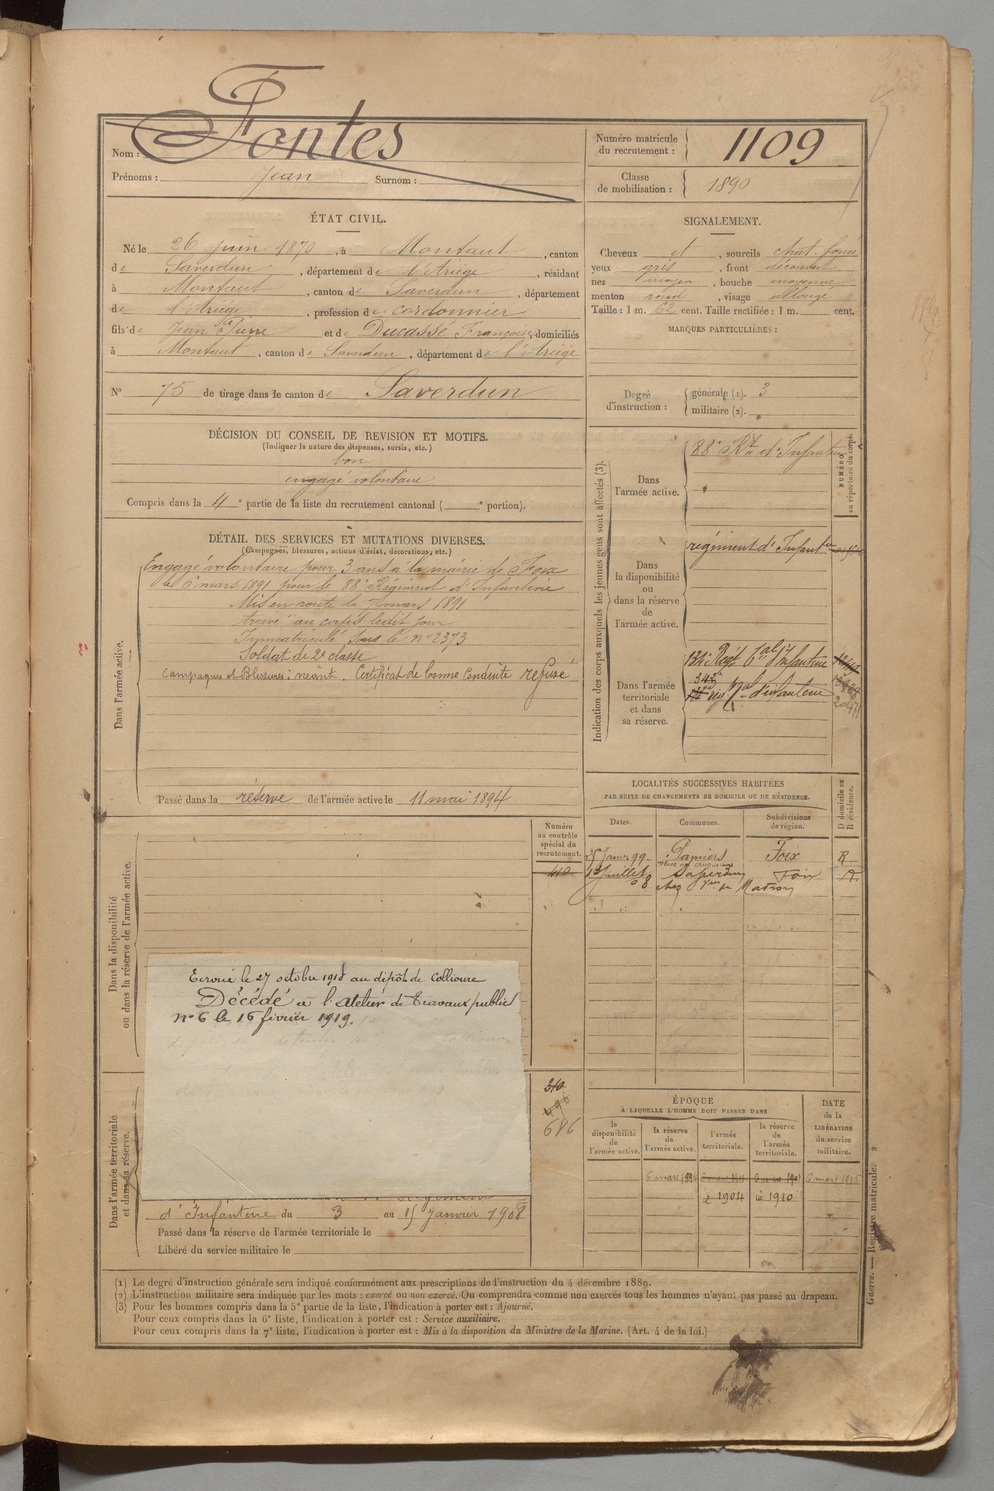 Nom : Fontes
Prénoms : Jean Surnom :
Numéro matricule du recrutement : 1109
Classe de mobilisation : 1890
ÉTAT CIVIL.
Né le 26 juin 1870, à Montaut, canton
de Saverdun, département de l'Ariège, résidant
à Montaut, canton de Saverdun, département
de l'Ariège, profession de cordonnier
fils de Jean Pierre et de Ducassé Françoise, domiciliés
à Montaut, canton de Saverdun, département de l'Ariège
N° 75 de tirage dans le canton de Saverdun
SIGNALEMENT.
Cheveux et, sourcils chat. foncé
yeux gris, front découvert
nez moyen, bouche moyenne
menton rond, visage allongé
Taille : 1 m. 62 cent. Taille rectifiée : 1 m. cent.
MARQUES PARTICULIÈRES :
Degré d'instruction : générale (1). 3
militaire (2).
DÉCISION DU CONSEIL DE REVISION ET MOTIFS.
(Indiquer la nature des dispenses, sursis, etc.)
bon
engagé volontaire
Compris dans la 4e partie de la liste du recrutement cantonal ( e portion).
DÉTAIL DES SERVICES ET MUTATIONS DIVERSES.
(Campagnes, blessures, actions d'éclat, décorations, etc.)
Dans l'armée active.
Engagé volontaire pour 3 ans à la mairie de Foix
le 6 mars 1891 pour le 88e Régiment d'Infanterie
Mis en route le mars 1891
Arrivé au corps ledit jour
Immatriculé sous le n° 2373
Soldat de 2e classe
Campagnes et Blessures : néant. Certificat de bonne Conduite refusé
Passé dans la réserve de l'armée active le 11 mai 1894
Indication des corps auxquels les jeunes gens sont affectés (3).
NUMÉRO au répertoire du corps.
Dans l'armée active. 88e Rt d'Infanterie
Dans la disponibilité ou dans la réserve de l'armée active. régiment d'Infanterie
Dans l'armée territoriale et dans sa réserve. 134e Régt tal d'Infanterie
d'infanterie
LOCALITÉS SUCCESSIVES HABITÉES
PAR SUITE DE CHANGEMENTS DE DOMICILE OU DE RÉSIDENCE.
Dates. Communes. Subdivisions de région. D domicile ou R résidence.
25 Janv. 99 Pamiers Foix R
13 Juillet 08 Saverdun Foix
chez de Madron
Dans la disponibilité ou dans la réserve de l'armée active.
Numéro au contrôle spécial du recrutement.
Ecroué le 27 octobre 1918 au dépôt de Collioure
Décédé à l'atelier de Travaux publics
N° 6 le 16 février 1919.
Dans l'armée territoriale et dans sa réserve.
310
496
686
d'Infanterie du 3 au 15 Janvier 1908
Passé dans la réserve de l'armée territoriale le
Libéré du service militaire le
ÉPOQUE
À LAQUELLE L'HOMME DOIT PASSER DANS
la disponibilité de l'armée active. la réserve de l'armée active. l'armée territoriale. la réserve de l'armée territoriale.
DATE de la LIBÉRATION du service militaire.
6 mars
1904 1910
(1) Le degré d'instruction générale sera indiqué conformément aux prescriptions de l'instruction du 4 décembre 1889.
(2) L'instruction militaire sera indiquée par les mots : exercé ou non exercé. On comprendra comme non exercés tous les hommes n'ayant pas passé au drapeau.
(3) Pour les hommes compris dans la 5e partie de la liste, l'indication à porter est : Ajourné.
Pour ceux compris dans la 6e liste, l'indication à porter est : Service auxiliaire.
Pour ceux compris dans la 7e liste, l'indication à porter est : Mis à la disposition du Ministre de la Marine. (Art. 4 de la loi.)
Guerre. — Registre matricule. 2